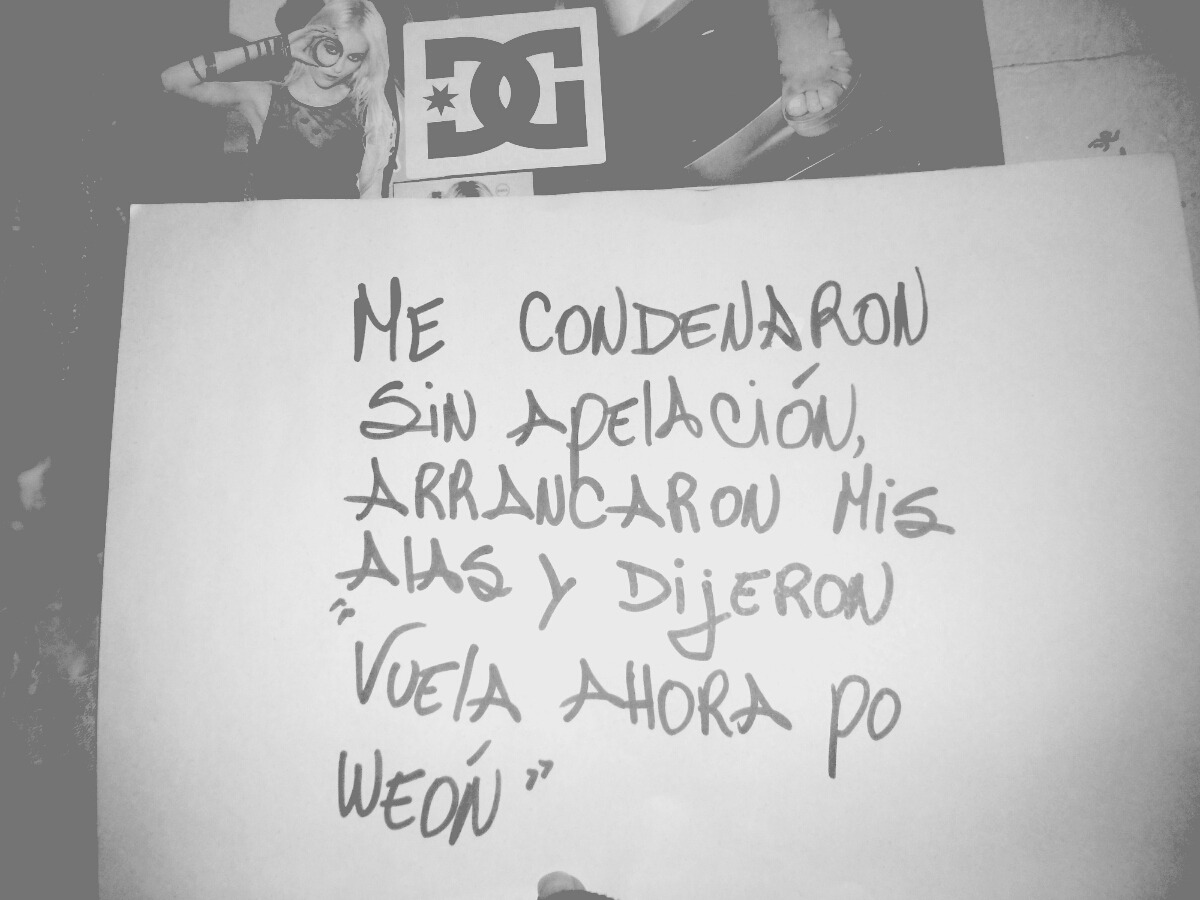 ME CONDENARON
SiN APElACiÓN,
ARRANCARON MiS
AlAS Y DijERON
"VUElA AHORA PO
WEÓN"